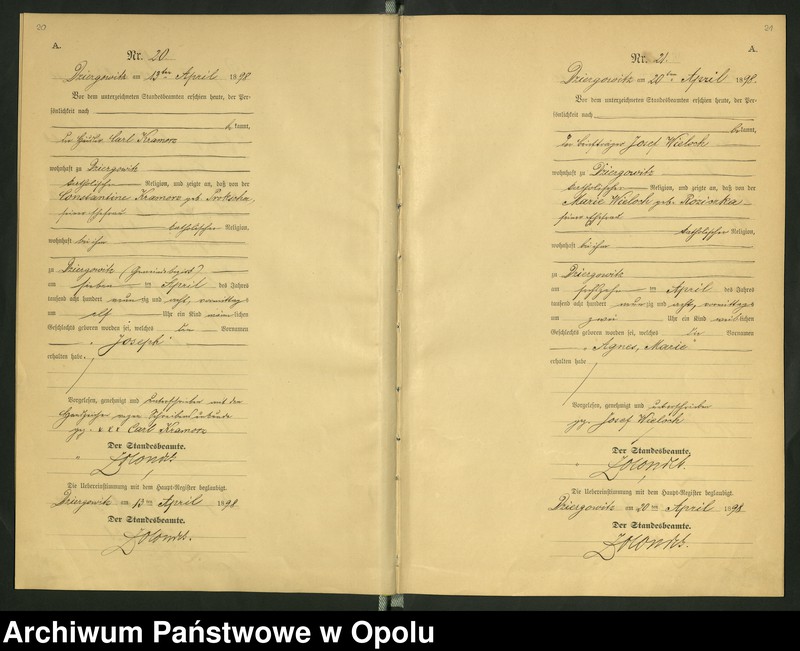 20
A.
Nr. 20
Dziergowitz am 13ten April 1898
Vor dem unterzeichneten Standesbeamten erschien heute, der Per-
sönlichkeit nach
kannt,
Carl Kramorz
wohnhaft zu Dziergowitz
katholischer Religion, und zeigte an, daß von der
Constantine Kramorz geb.
seiner Ehefrau
katholischer Religion,
wohnhaft bei ihm
zu Dziergowitz (Gemeindebezirk)
am sieben ten April des Jahres
tausend acht hundert neun zig und acht, vormittags
um elf Uhr ein Kind männlichen
Geschlechts geboren worden sei, welches die Vornamen
"Joseph"
erhalten habe.
Vorgelesen, genehmigt und unterschrieben mit den
Handzeichen wegen Schreibensunkunde
gez. x x x Carl Kramorz
Der Standesbeamte.
Die Uebereinstimmung mit dem Haupt-Register beglaubigt.
Dziergowitz am 13ten April 1898
Der Standesbeamte.
21
A.
Nr. 21.
Dziergowitz am 20ten April 1898
Vor dem unterzeichneten Standesbeamten erschien heute, der Per-
sönlichkeit nach
kannt,
der Briefträger Josef Wieloch
wohnhaft zu Dziergowitz
katholischer Religion, und zeigte an, daß von der
Marie Wieloch geb.
seiner Ehefrau
katholischer Religion,
wohnhaft bei ihm
zu Dziergowitz
am sechszehn ten April des Jahres
tausend acht hundert neun zig und acht, vormittags
um zwei Uhr ein Kind weiblichen
Geschlechts geboren worden sei, welches die Vornamen
"Agnes, Marie"
erhalten habe
Vorgelesen, genehmigt und unterschrieben
gez. Josef Wieloch
Der Standesbeamte,
Die Uebereinstimmung mit dem Haupt-Register beglaubigt.
Dziergowitz am 20ten April 1898
Der Standesbeamte.
Archiwum Państwowe w Opolu